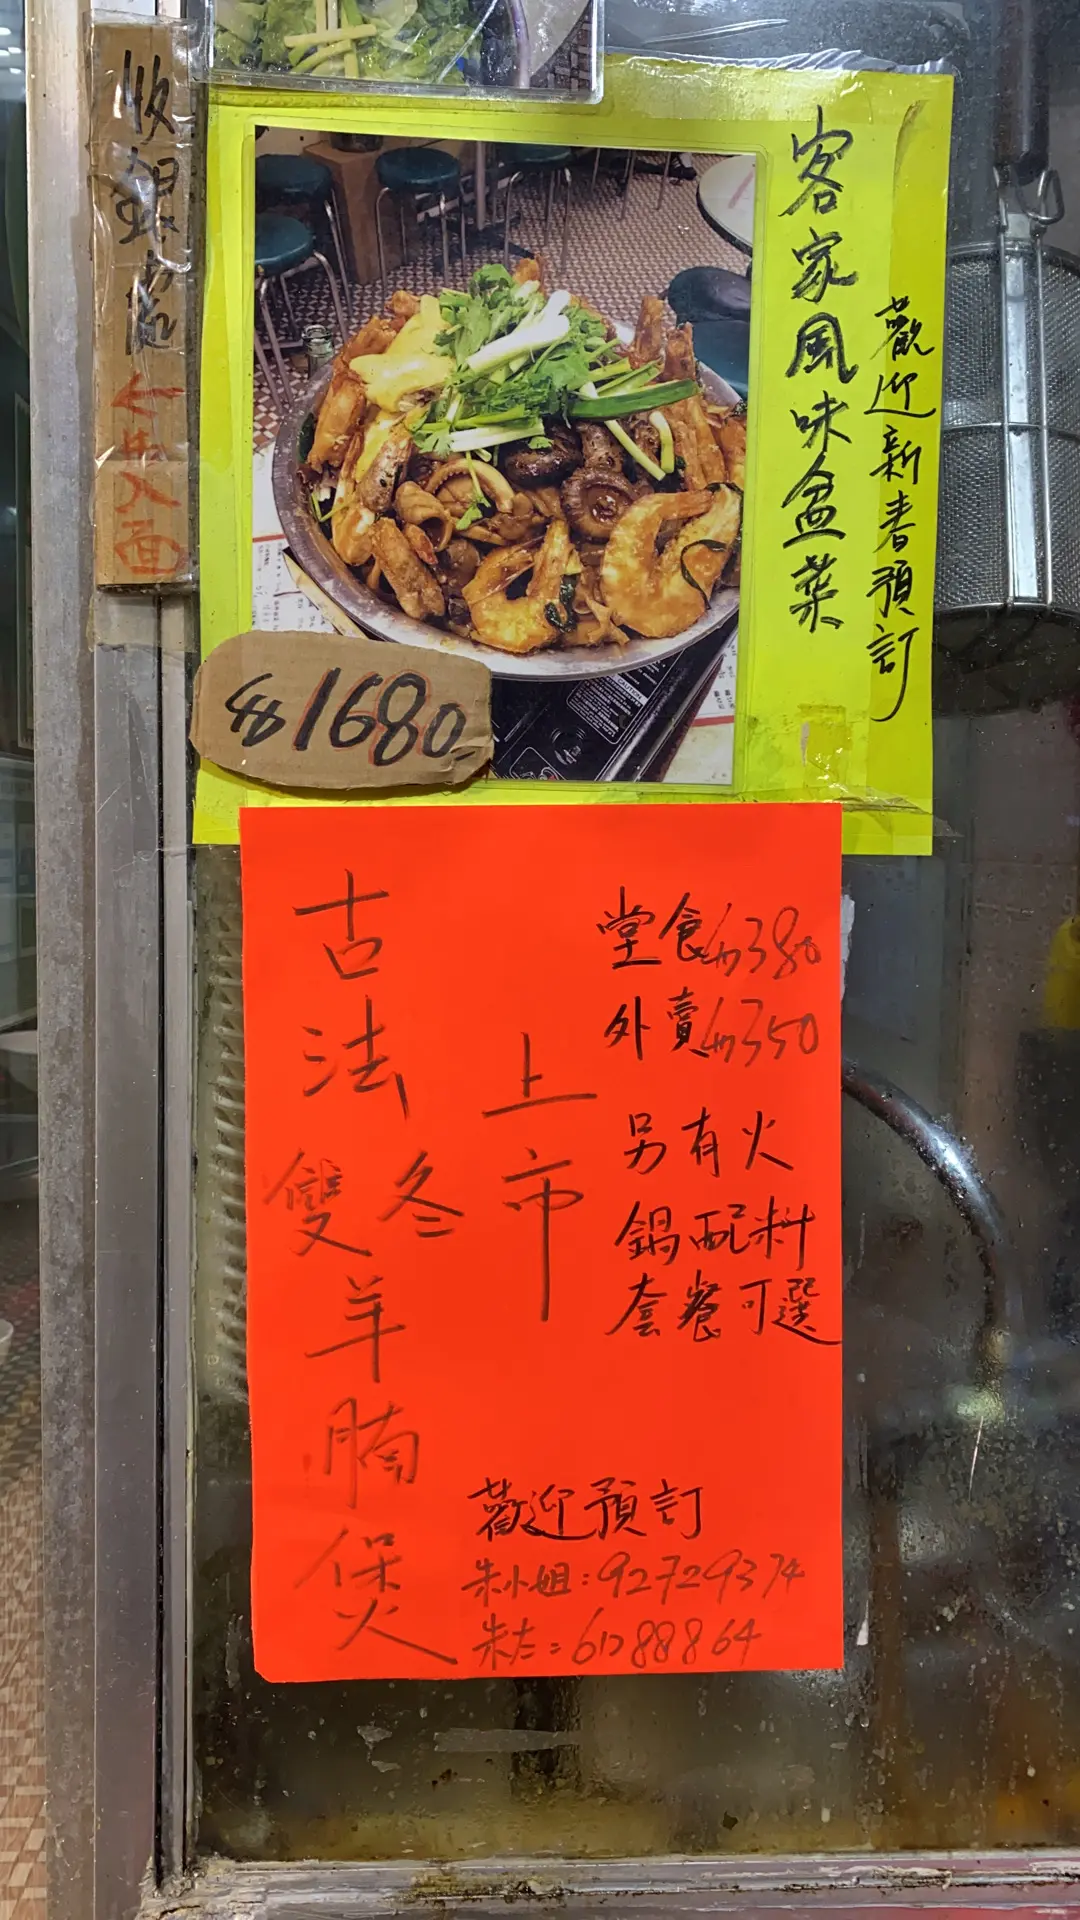 收銀處
←在入面
客家風味盆菜
歡迎新春預訂
$1680.-
古法雙冬羊腩煲
上市
堂食$380
外賣$350
另有火
鍋配料
套餐可選
歡迎預訂
朱小姐:92729374
朱太:61288864